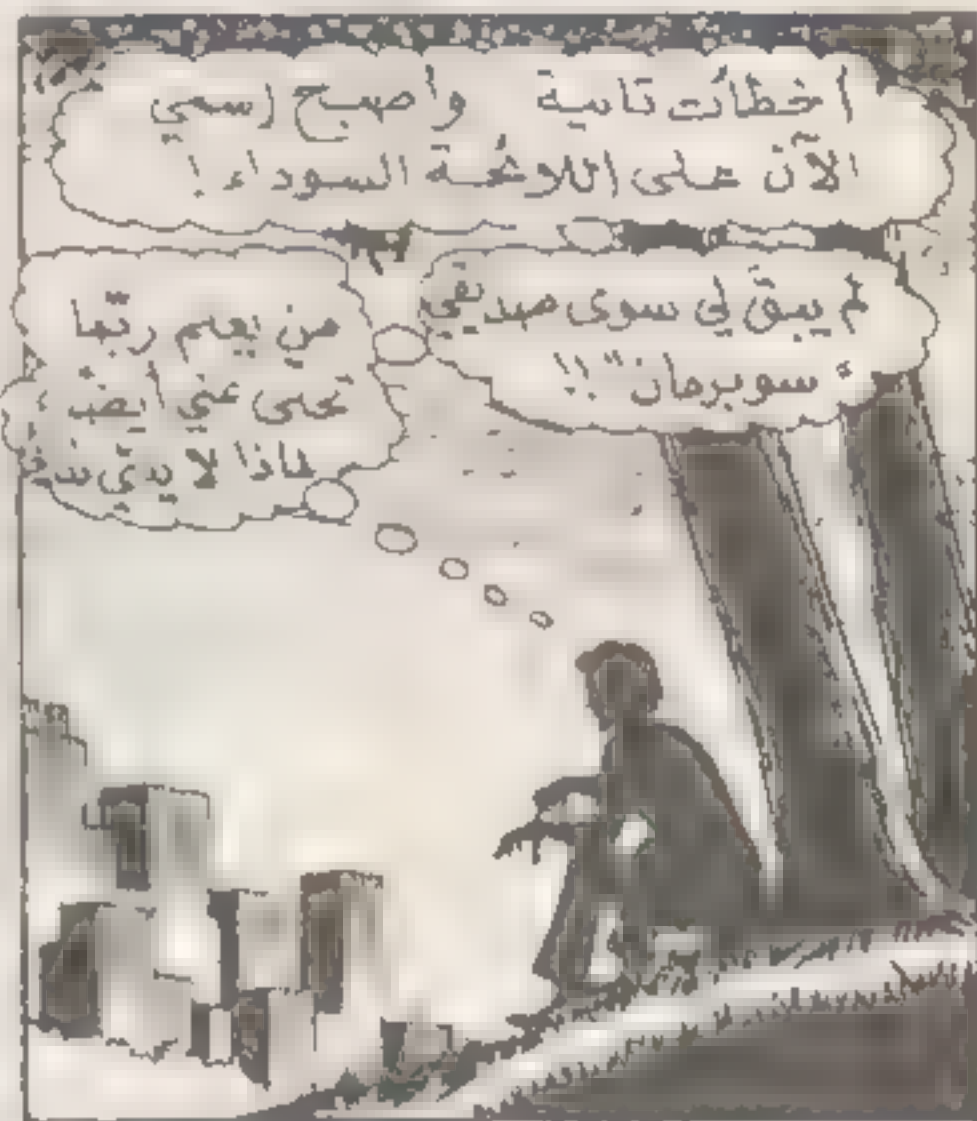 أخطأت ثانية وأصبح إسمي
الآن على اللائحة السوداء !
لم يبقَ لي سوى صديقي
"سوبرمان" !!
من يعلم ربّما
تخلى عني أيضاً ،
لماذا لا